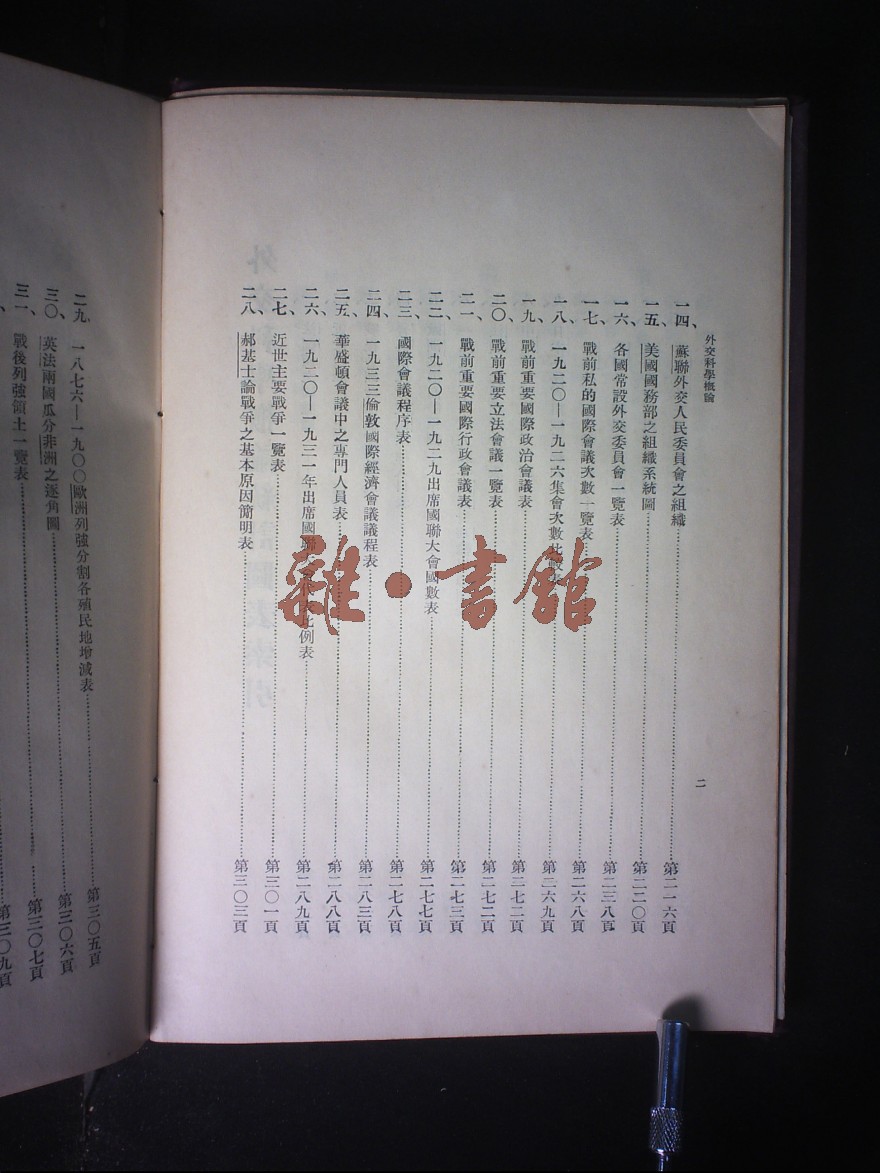 外交科學概論
二
一四、蘇聯外交人民委員會之組織……第二一六頁
一五、美國國務部之組織系統圖……第二二〇頁
一六、各國常設外交委員會一覽表……第二三八頁
一七、戰前私的國際會議次數一覽表……第二六八頁
一八、一九二〇—一九二六集會次數比較表……第二六九頁
一九、戰前重要國際政治會議表……第二七二頁
二〇、戰前重要立法會議一覽表……第二七二頁
二一、戰前重要國際行政會議表……第二七三頁
二二、一九二〇—一九二九出席國聯大會國數表……第二七七頁
二三、國際會議程序表……第二七八頁
二四、一九三三倫敦國際經濟會議議程表……第二八三頁
二五、華盛頓會議中之專門人員表……第二八八頁
二六、一九二〇—一九三一年出席國聯 比例表……第二八九頁
二七、近世主要戰爭一覽表……第三〇一頁
二八、郝基士論戰爭之基本原因簡明表……第三〇三頁
二九、一八七六—一九〇〇歐洲列強分割各殖民地增減表……第三〇五頁
三〇、英法兩國瓜分非洲之逐角圖……第三〇六頁
三一、戰後列強領土一覽表……第三〇七頁
第三〇九頁
雜·書館